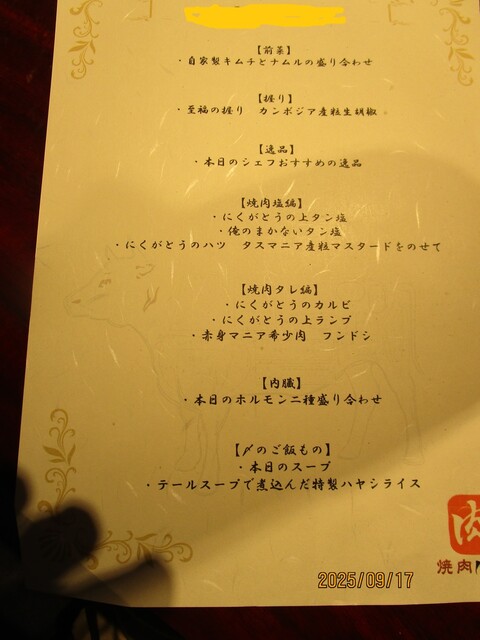 【前菜】
・自家製キムチとナムルの盛り合わせ
【握り】
・至福の握り　カンボジア産粒生胡椒
【逸品】
・本日のシェフおすすめの逸品
【焼肉塩編】
・にくがとうの上タン塩
・俺のまかないタン塩
・にくがとうのハツ　タスマニア産粒マスタードをのせて
【焼肉タレ編】
・にくがとうのカルビ
・にくがとうの上ランプ
・赤身マニア希少肉　フンドシ
【内臓】
・本日のホルモン二種盛り合わせ
【〆のご飯もの】
・本日のスープ
・テールスープで煮込んだ特製ハヤシライス
肉
焼肉
2025/09/17